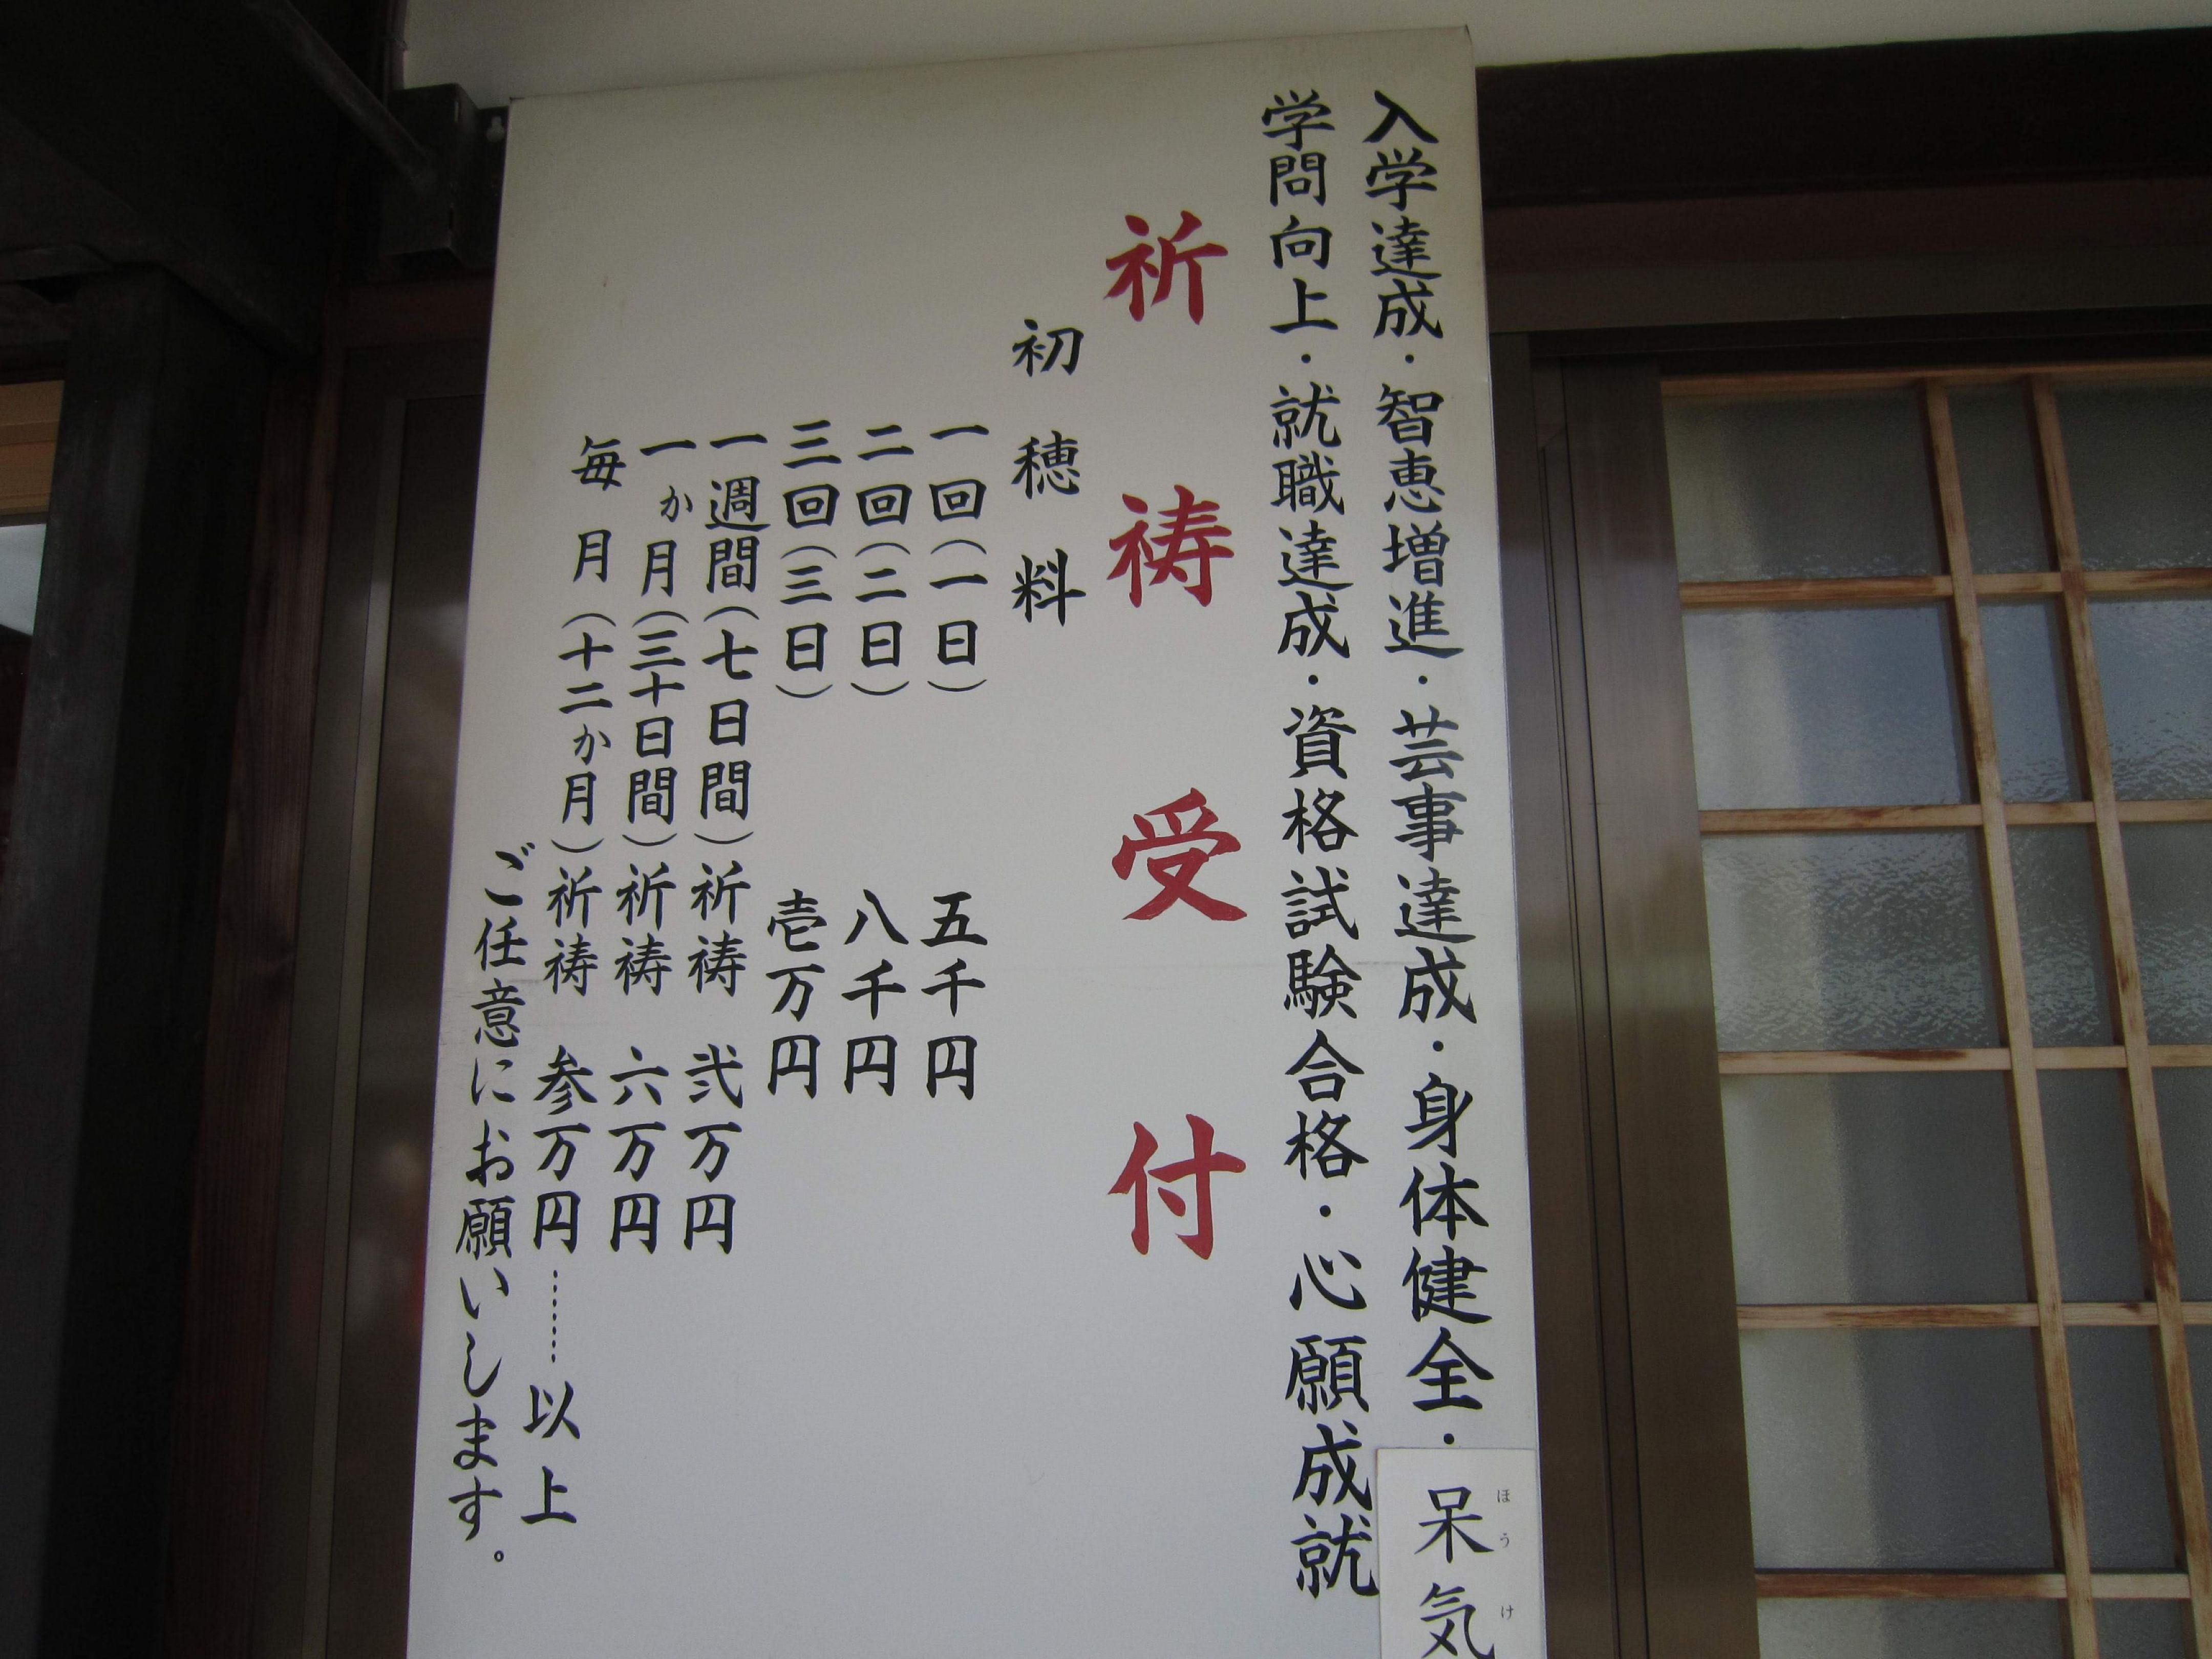 入学達成・智恵増進・芸事達成・身体健全・呆気
ほうけ
学問向上・就職達成・資格試験合格・心願成就
祈祷受付
初穂料
一回（一日） 五千円
二回（二日） 八千円
三回（三日） 壱万円
一週間（七日間）祈祷 弐万円
一か月（三十日間）祈祷 六万円
毎月（十二か月）祈祷 参万円……以上
ご任意にお願いします。